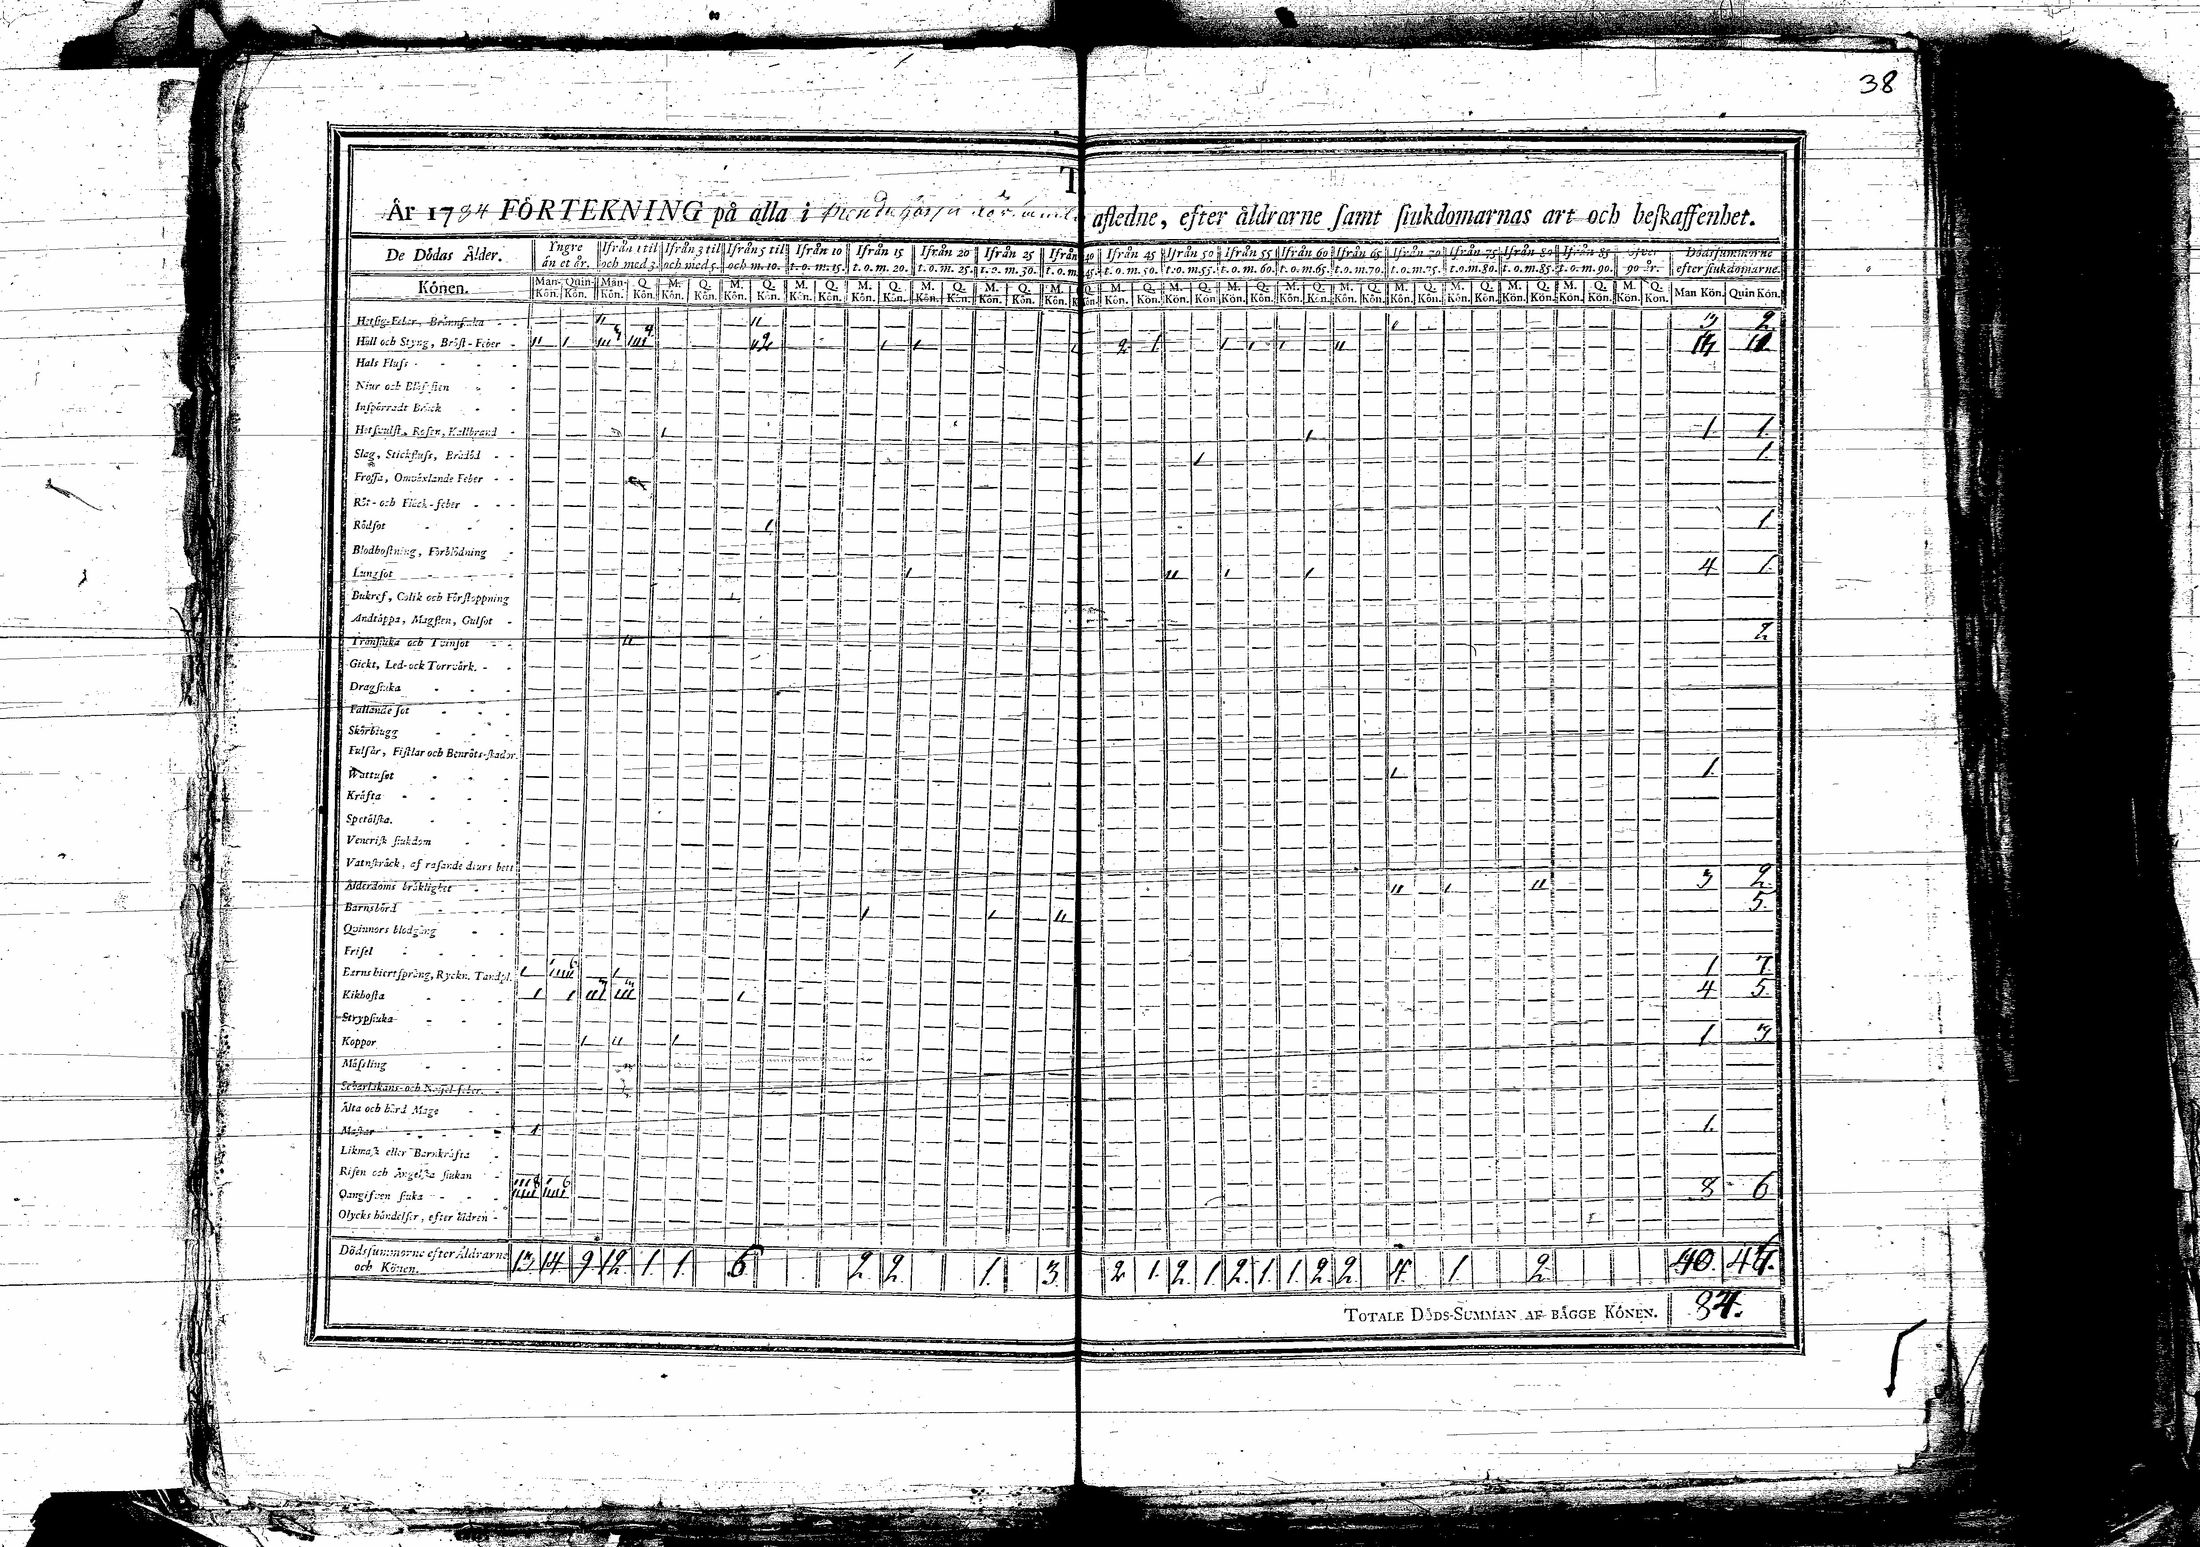 38
T.
År 1784 FÖRTEKNING på alla i aflednе, efter åldrarne samt siukdomarnas art och beskaffenhet.
De Dödas Ålder. Yngre än et år. Ifrån 1 til och med 3. Ifrån 3 til och med 5. Ifrån 5 til och m. 10. Ifrån 10 t. o. m. 15. Ifrån 15 t. o. m. 20. Ifrån 20 t. o. m. 25. Ifrån 25 t. o. m. 30. Ifrån 40 t. o. m. 45. Ifrån 45 t. o. m. 50. Ifrån 50 t. o. m. 55. Ifrån 55 t. o. m. 60. Ifrån 60 t. o. m. 65. Ifrån 65 t. o. m. 70. Ifrån 70 t. o. m. 75. Ifrån 75 t. o. m. 80. Ifrån 80 t. o. m. 85. Ifrån 85 t. o. m. 90. öfver 90 år. Dödssummorne efter siukdomarne.
Könen. Man-Kön. Quin-Kön. Man-Kön. Q. Kön. M. Kön. Q. Kön. M. Kön. Q. Kön. Man Kön. Quin Kön.
Hetsig-Feber, Brännsiuka 3 2
Håll och Styng, Bröst-Feber
Hals Fluss
Niur och Blåssten
Inspärradt Bråck
Hetsvulst, Rosen, Kallbrand 1. 1.
Slag, Stickfluss, Brådöd 1.
Frossa, Omväxlande Feber
Röt- och Fläck-feber
Rödsot 1
Blodhostning, Förblödning
Lungsot 4 1.
Bukref, Colik och Förstoppning
Andtäppa, Magsten, Gulsot
Tränsiuka och Tvinsot 2
Gickt, Led- ock Torrvärk.
Dragsiuka
Fallande sot
Skörbiugg
Fulsår, Fistlar och Benröts-skador.
Wattusot 1.
Kräfta
Spetälska.
Venerisk siukdom
Vatnskräck, af rasande diurs bett
Ålderdoms bräklighet 3 2.
Barnsbörd 5.
Quinnors blodgång
Frisel
Barns hiertspräng, Ryckn. Tandpl. 1 7.
Kikhosta 4 5.
Strypsiuka
Koppor 1. 3
Mässling
Scharlakans- och Nässel-feber.
Älta och hård Mage
Maskar 1.
Likmask eller Barnkräfta
Risen och Ängelska siukan
Oangifven siuka 8 6
Olycks händelser, efter äldren
Dödssummorne efter Åldrarne och Könen. 13. 14 9 12. 1. 1. 6. 2 2. 1. 3. 2 1. 2. 1 2. 1 1. 2 2. 4. 1. 2 40.
TOTALE DÖDS-SUMMAN AF BÄGGE KÖNEN. 84.